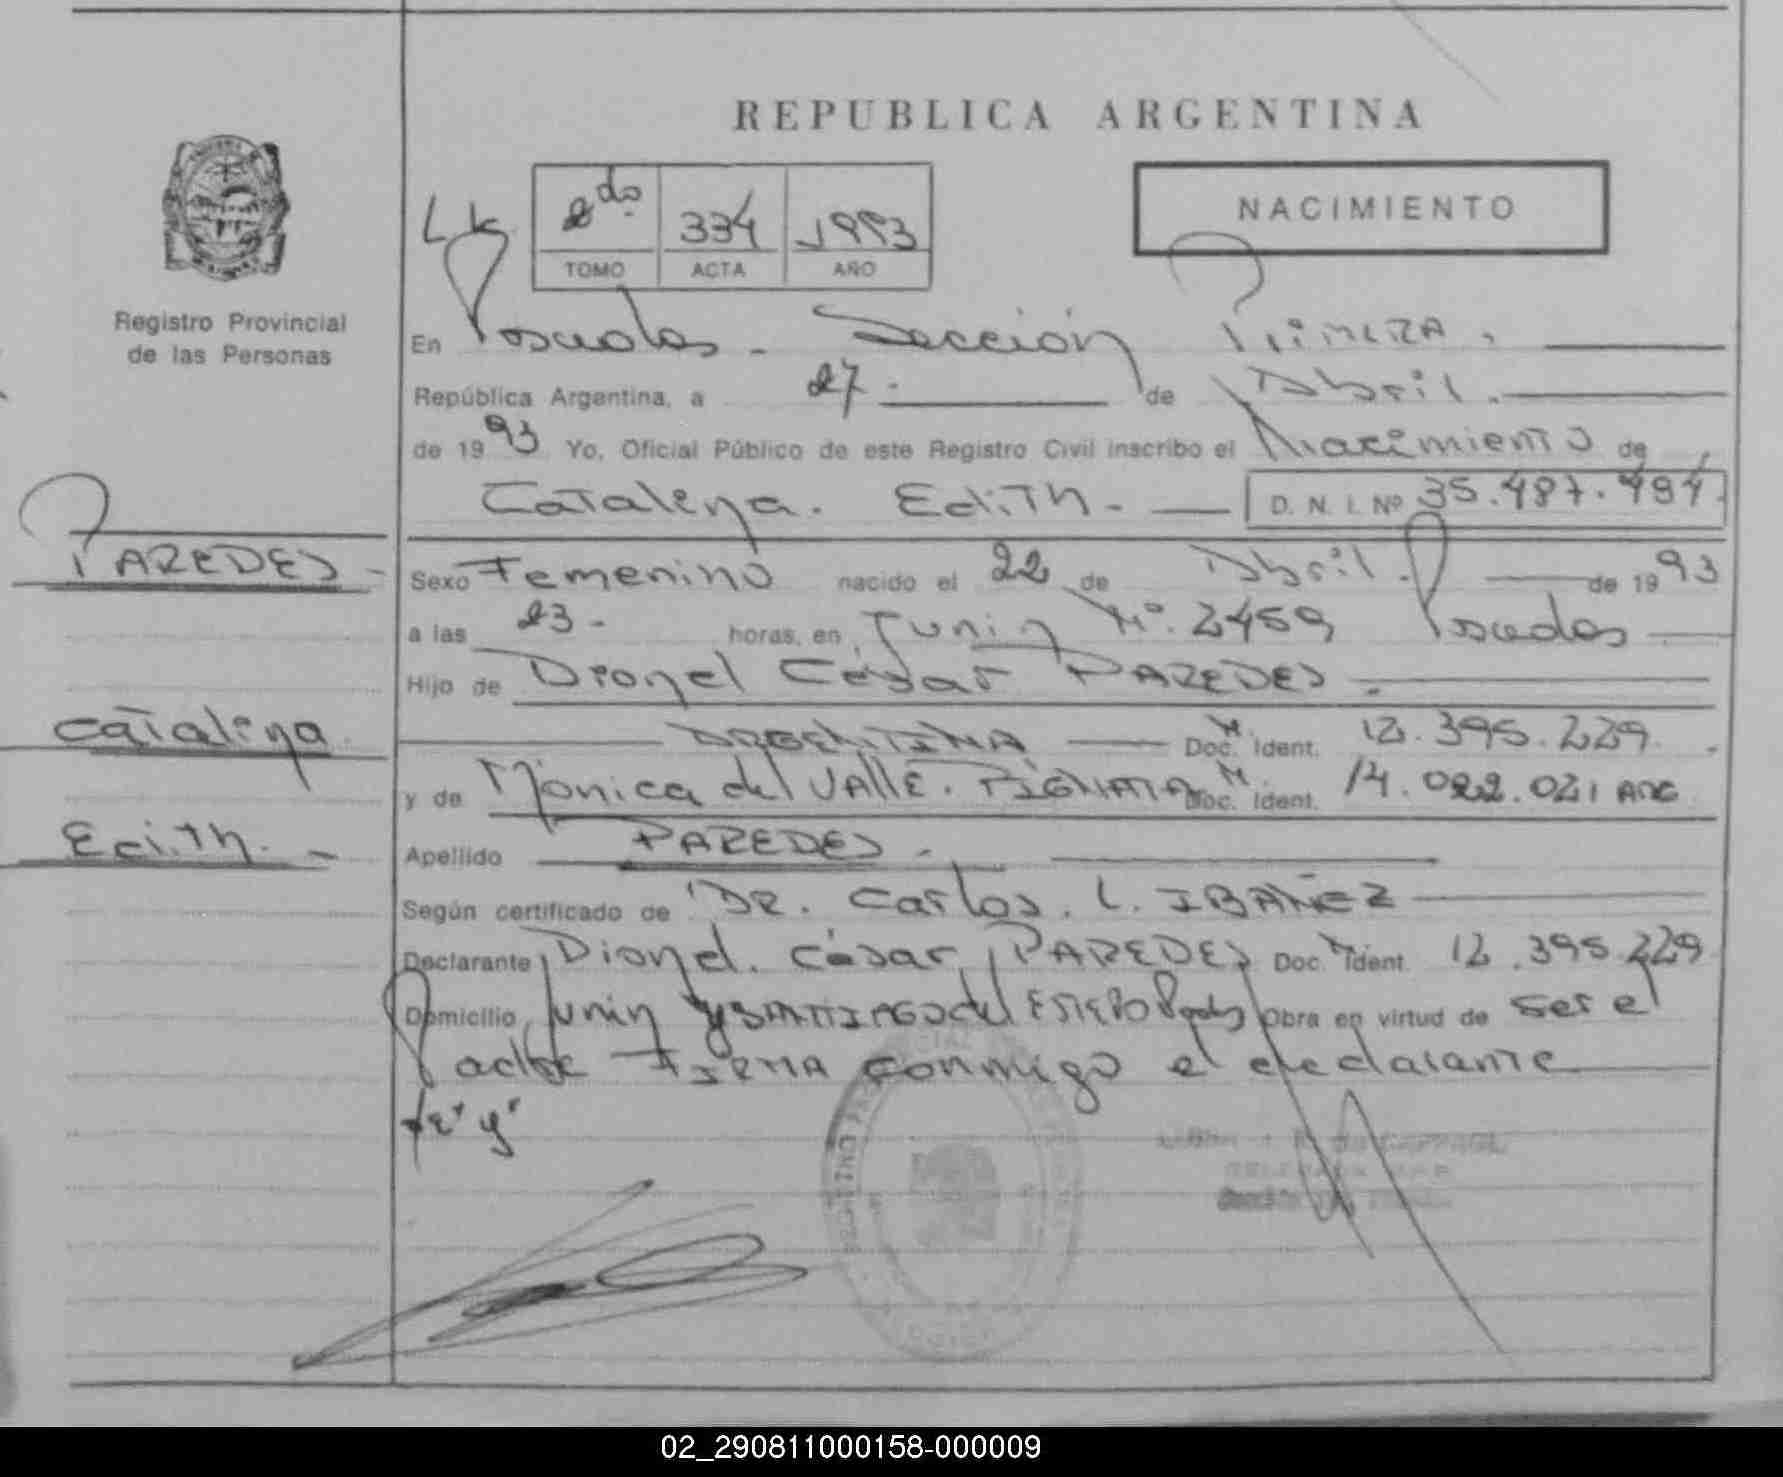 REPUBLICA ARGENTINA
2do. 334 1993
TOMO ACTA AÑO
NACIMIENTO
Registro Provincial
de las Personas
En Posadas - Sección Primera.
República Argentina, a 27. de Abril.
de 1993 Yo, Oficial Público de este Registro Civil inscribo el Nacimiento de
Catalina. Edith. - D. N. I. Nº 35.487.494.
PAREDES -
Sexo Femenino nacido el 22 de Abril. de 1993
a las 23 - horas, en Junin Nº. 2459 Posadas
Hijo de Dionel César PAREDES -
Catalina
ARGENTINA Doc. M. Ident. 12.395.229.
y de Mónica del VALLE. PIGNATA Doc. M. Ident. 14.022.021 ARG
Edith. -
Apellido PAREDES -
Según certificado de DR. Carlos. L. IBAÑEZ
Declarante Dionel. César PAREDES Doc. M. Ident. 12.395.229
Domicilio Junin y SANTIAGO del ESTERO Pdas Obra en virtud de ser el
Padre FIRMA conmigo el declarante
"y"
REGISTRO
02_290811000158-000009